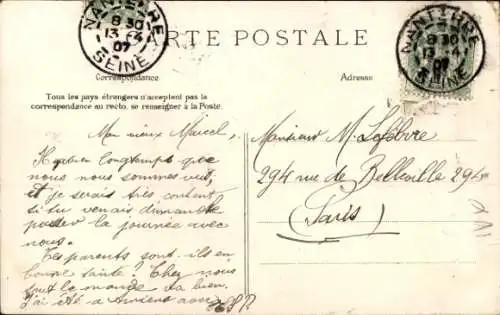 CARTE POSTALE
NANTERRE
8 30
13 -4
07
SEINE
NANTERRE
8 30
13 -4
07
SEINE
Correspondance
Adresse
Tous les pays étrangers n'acceptent pas la
correspondance au recto. se renseigner à la Poste.
Mon vieux Marcel,
Il y a bien longtemps que
nous nous sommes vus,
et je serais très content
si tu venais dimanche
passer la journée avec
nous.
Tes parents sont-ils en
bonne santé? Chez nous
tout le monde va bien.
J'ai été à Amiens avec
Monsieur M. Lefebvre
294 rue de Belleville 294
(Paris)